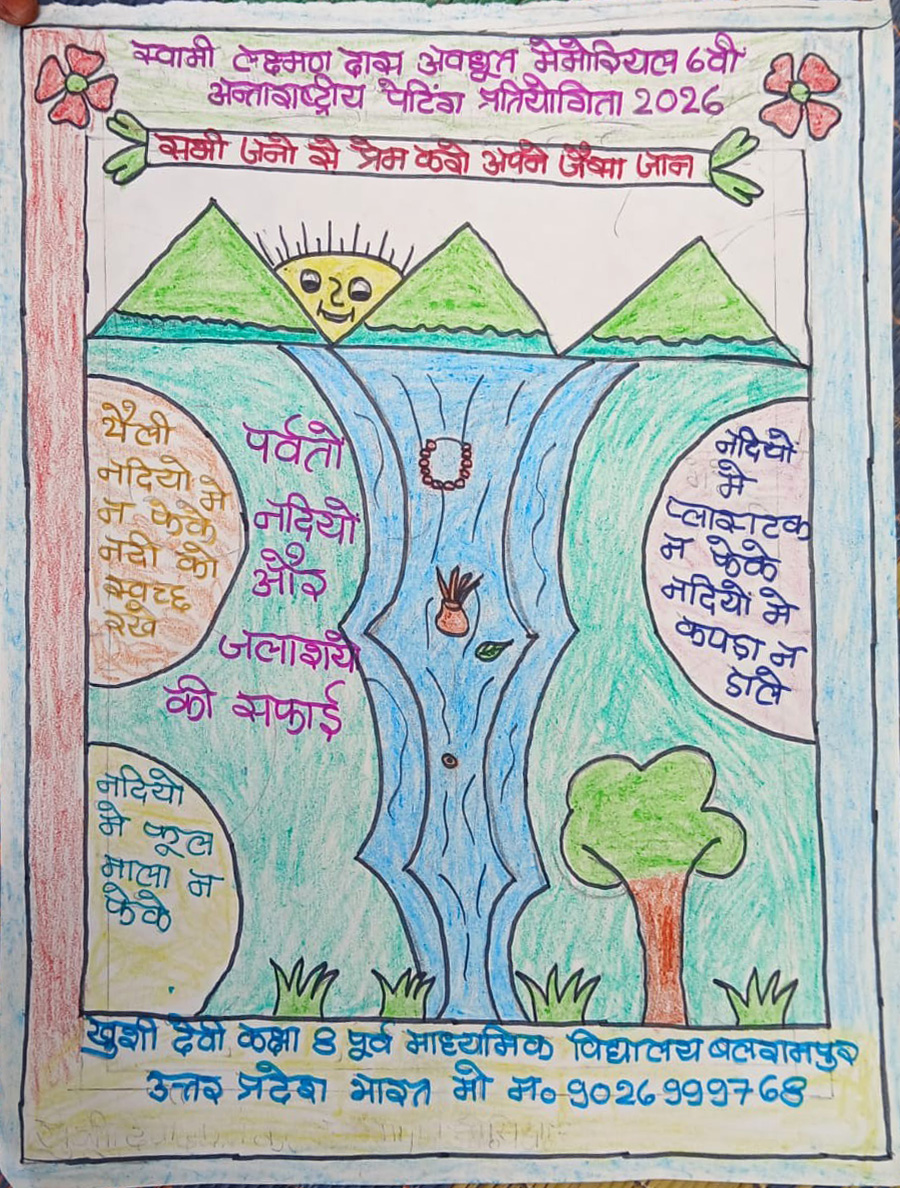 स्वामी लक्ष्मण दास अवधूत मेमोरियल 6वी
अन्ताराष्ट्रीय पेटिंग प्रतियोगिता 2026
सभी जनो से प्रेम करो अपने जैसा जान
थैली
नदियो मे
न फेके
नदी को
स्वच्छ
रखे
पर्वतो
नदियों
और
जलाशयो
की सफाई
नदियों
मे
प्लासटिक
न फेके
नदियों मे
कपड़ा न
डाले
नदियो
मे फूल
माला न
फेके
खुशी देवी कक्षा 8 पूर्व माध्यमिक विद्यालय बलरामपुर
उत्तर प्रदेश भारत मो न० 9026999768